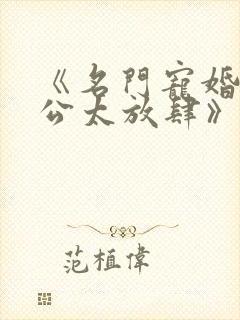 《名門寵婚
公太放肆》
范植偉